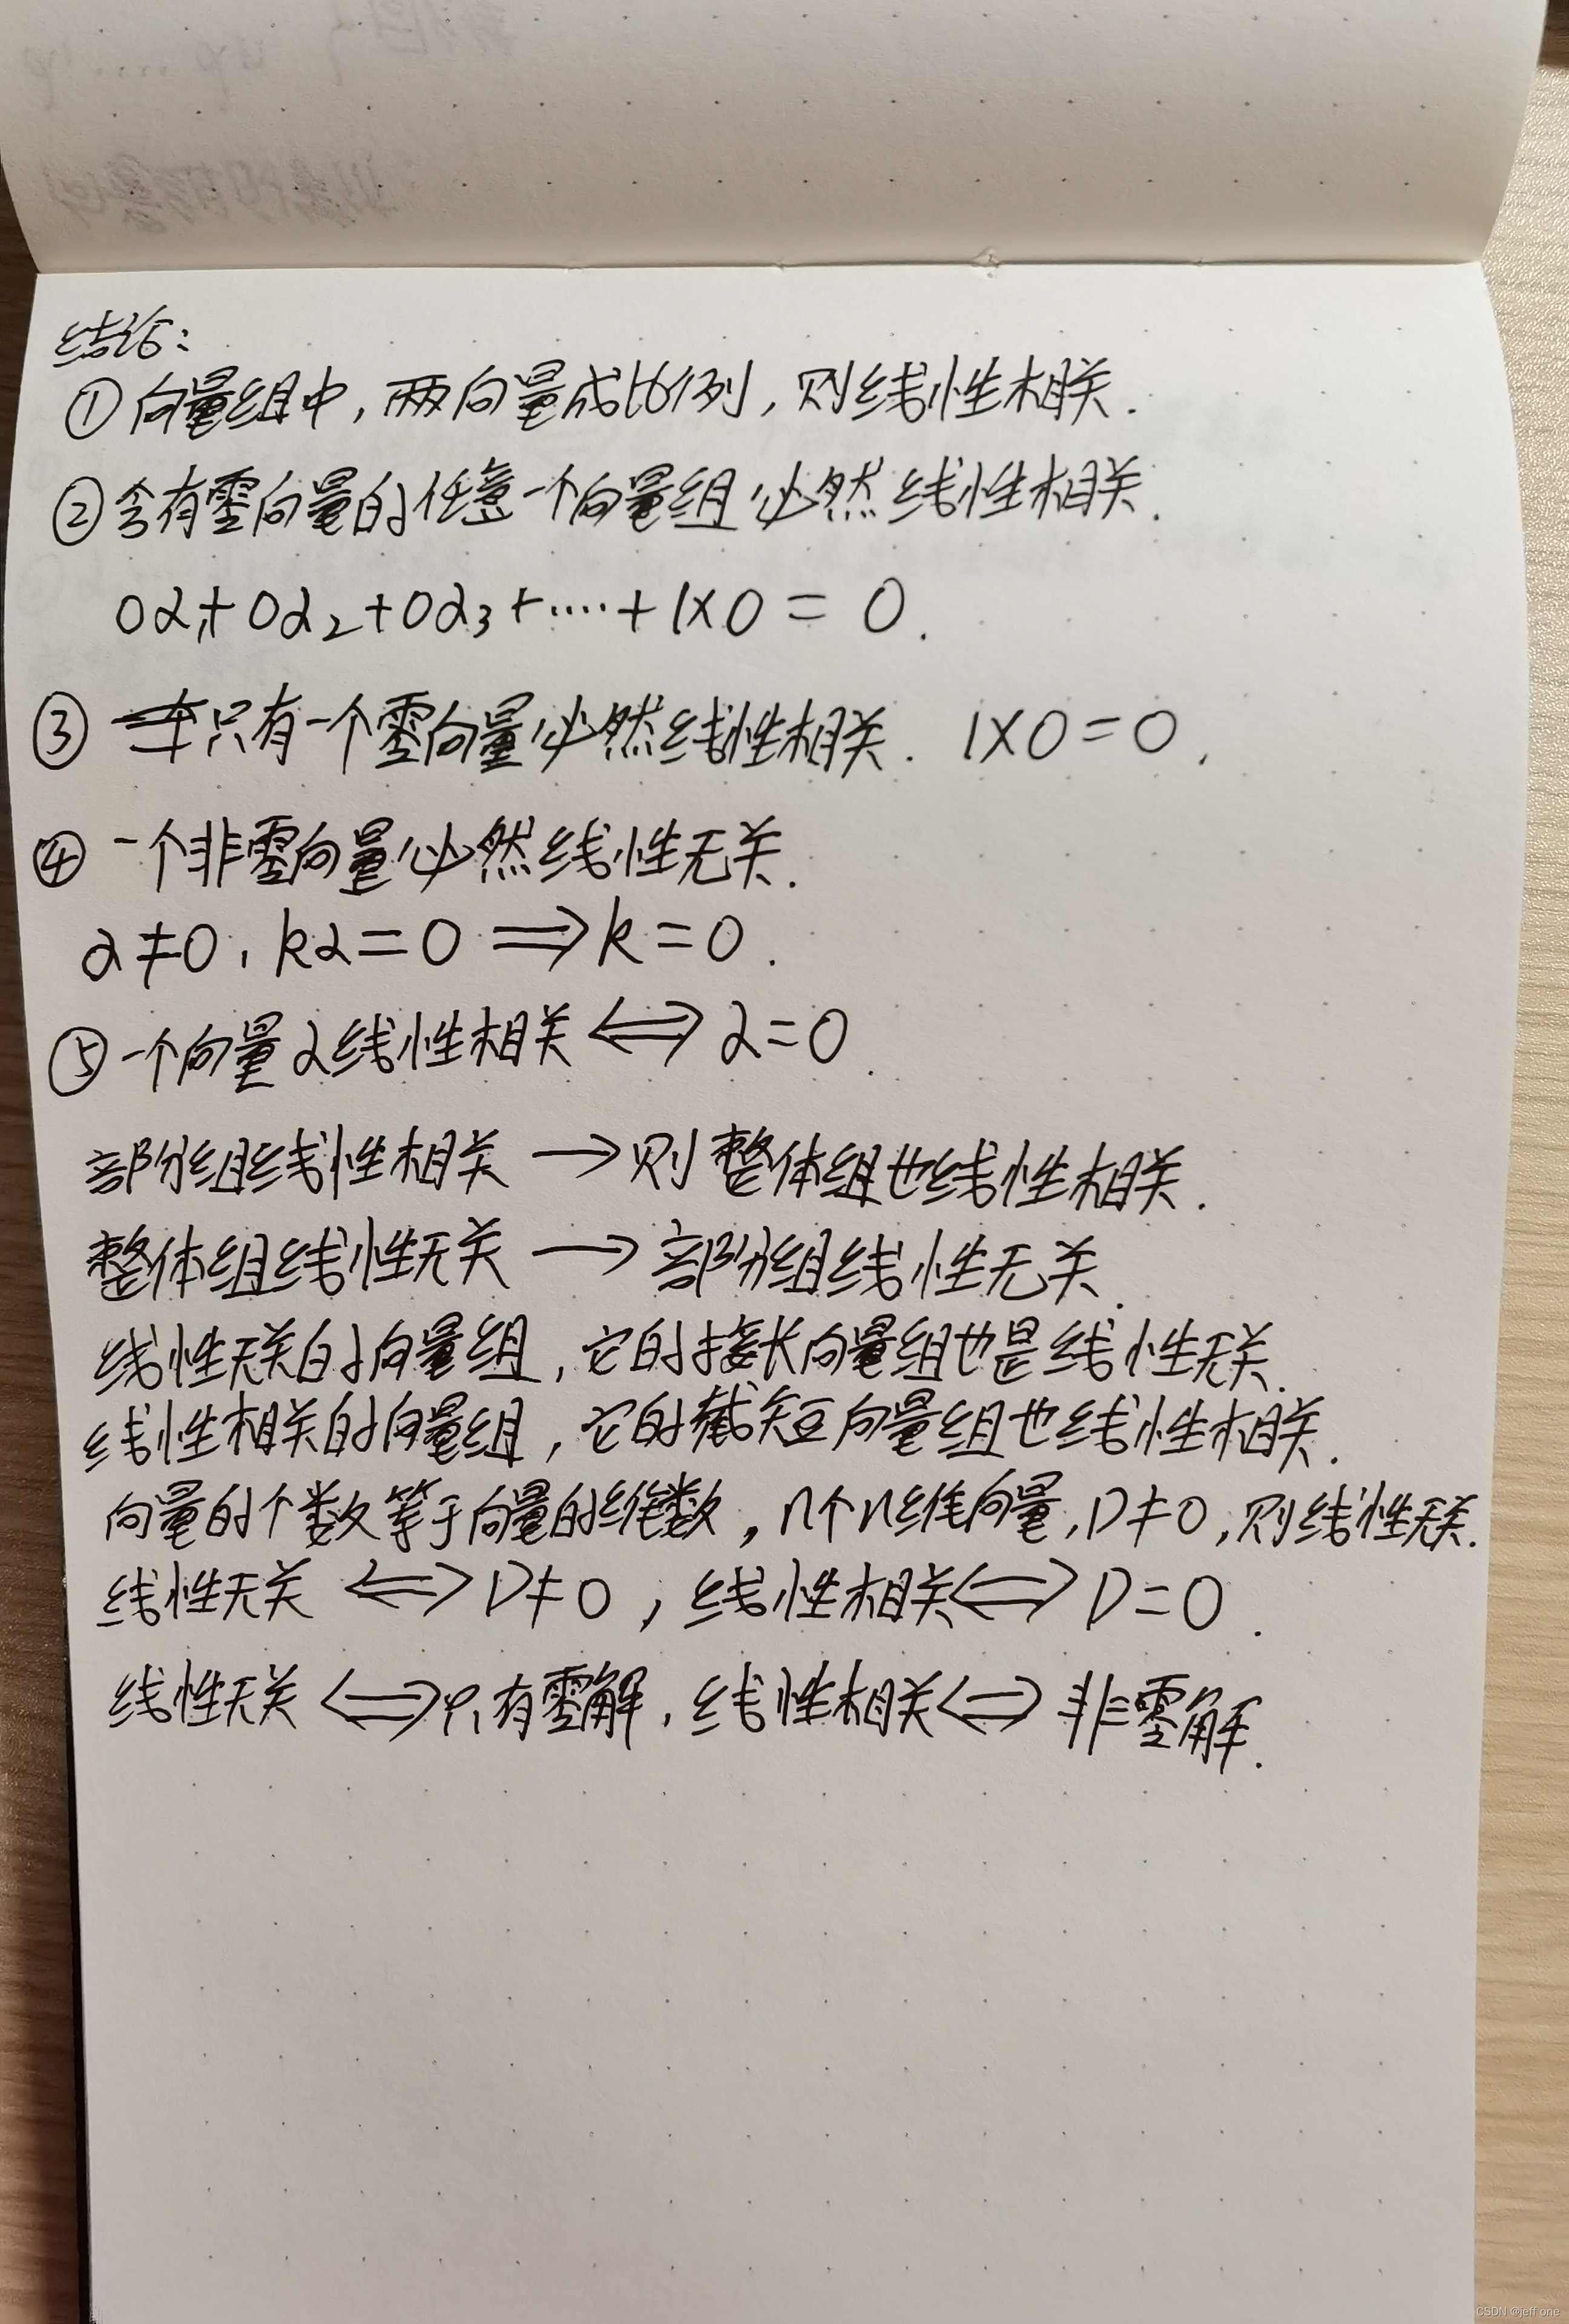 结论:
① 向量组中, 两向量成比例, 则线性相关.
② 含有零向量的任意一个向量组必然线性相关.
0α₁+0α₂+0α₃+····+1×0=0.
③ 只有一个零向量必然线性相关. 1×0=0.
④ 一个非零向量必然线性无关.
α≠0, kα=0 ⟹ k=0.
⑤ 一个向量α线性相关 ⟺ α=0.
部分组线性相关 → 则整体组也线性相关.
整体组线性无关 → 部分组线性无关.
线性无关的向量组, 它的接长向量组也是线性无关.
线性相关的向量组, 它的截短向量组也线性相关.
向量的个数等于向量的维数, n个n维向量, D≠0, 则线性无关.
线性无关 ⟺ D≠0, 线性相关 ⟺ D=0.
线性无关 ⟺ 只有零解. 线性相关 ⟺ 非零解.
CSDN @jeff one